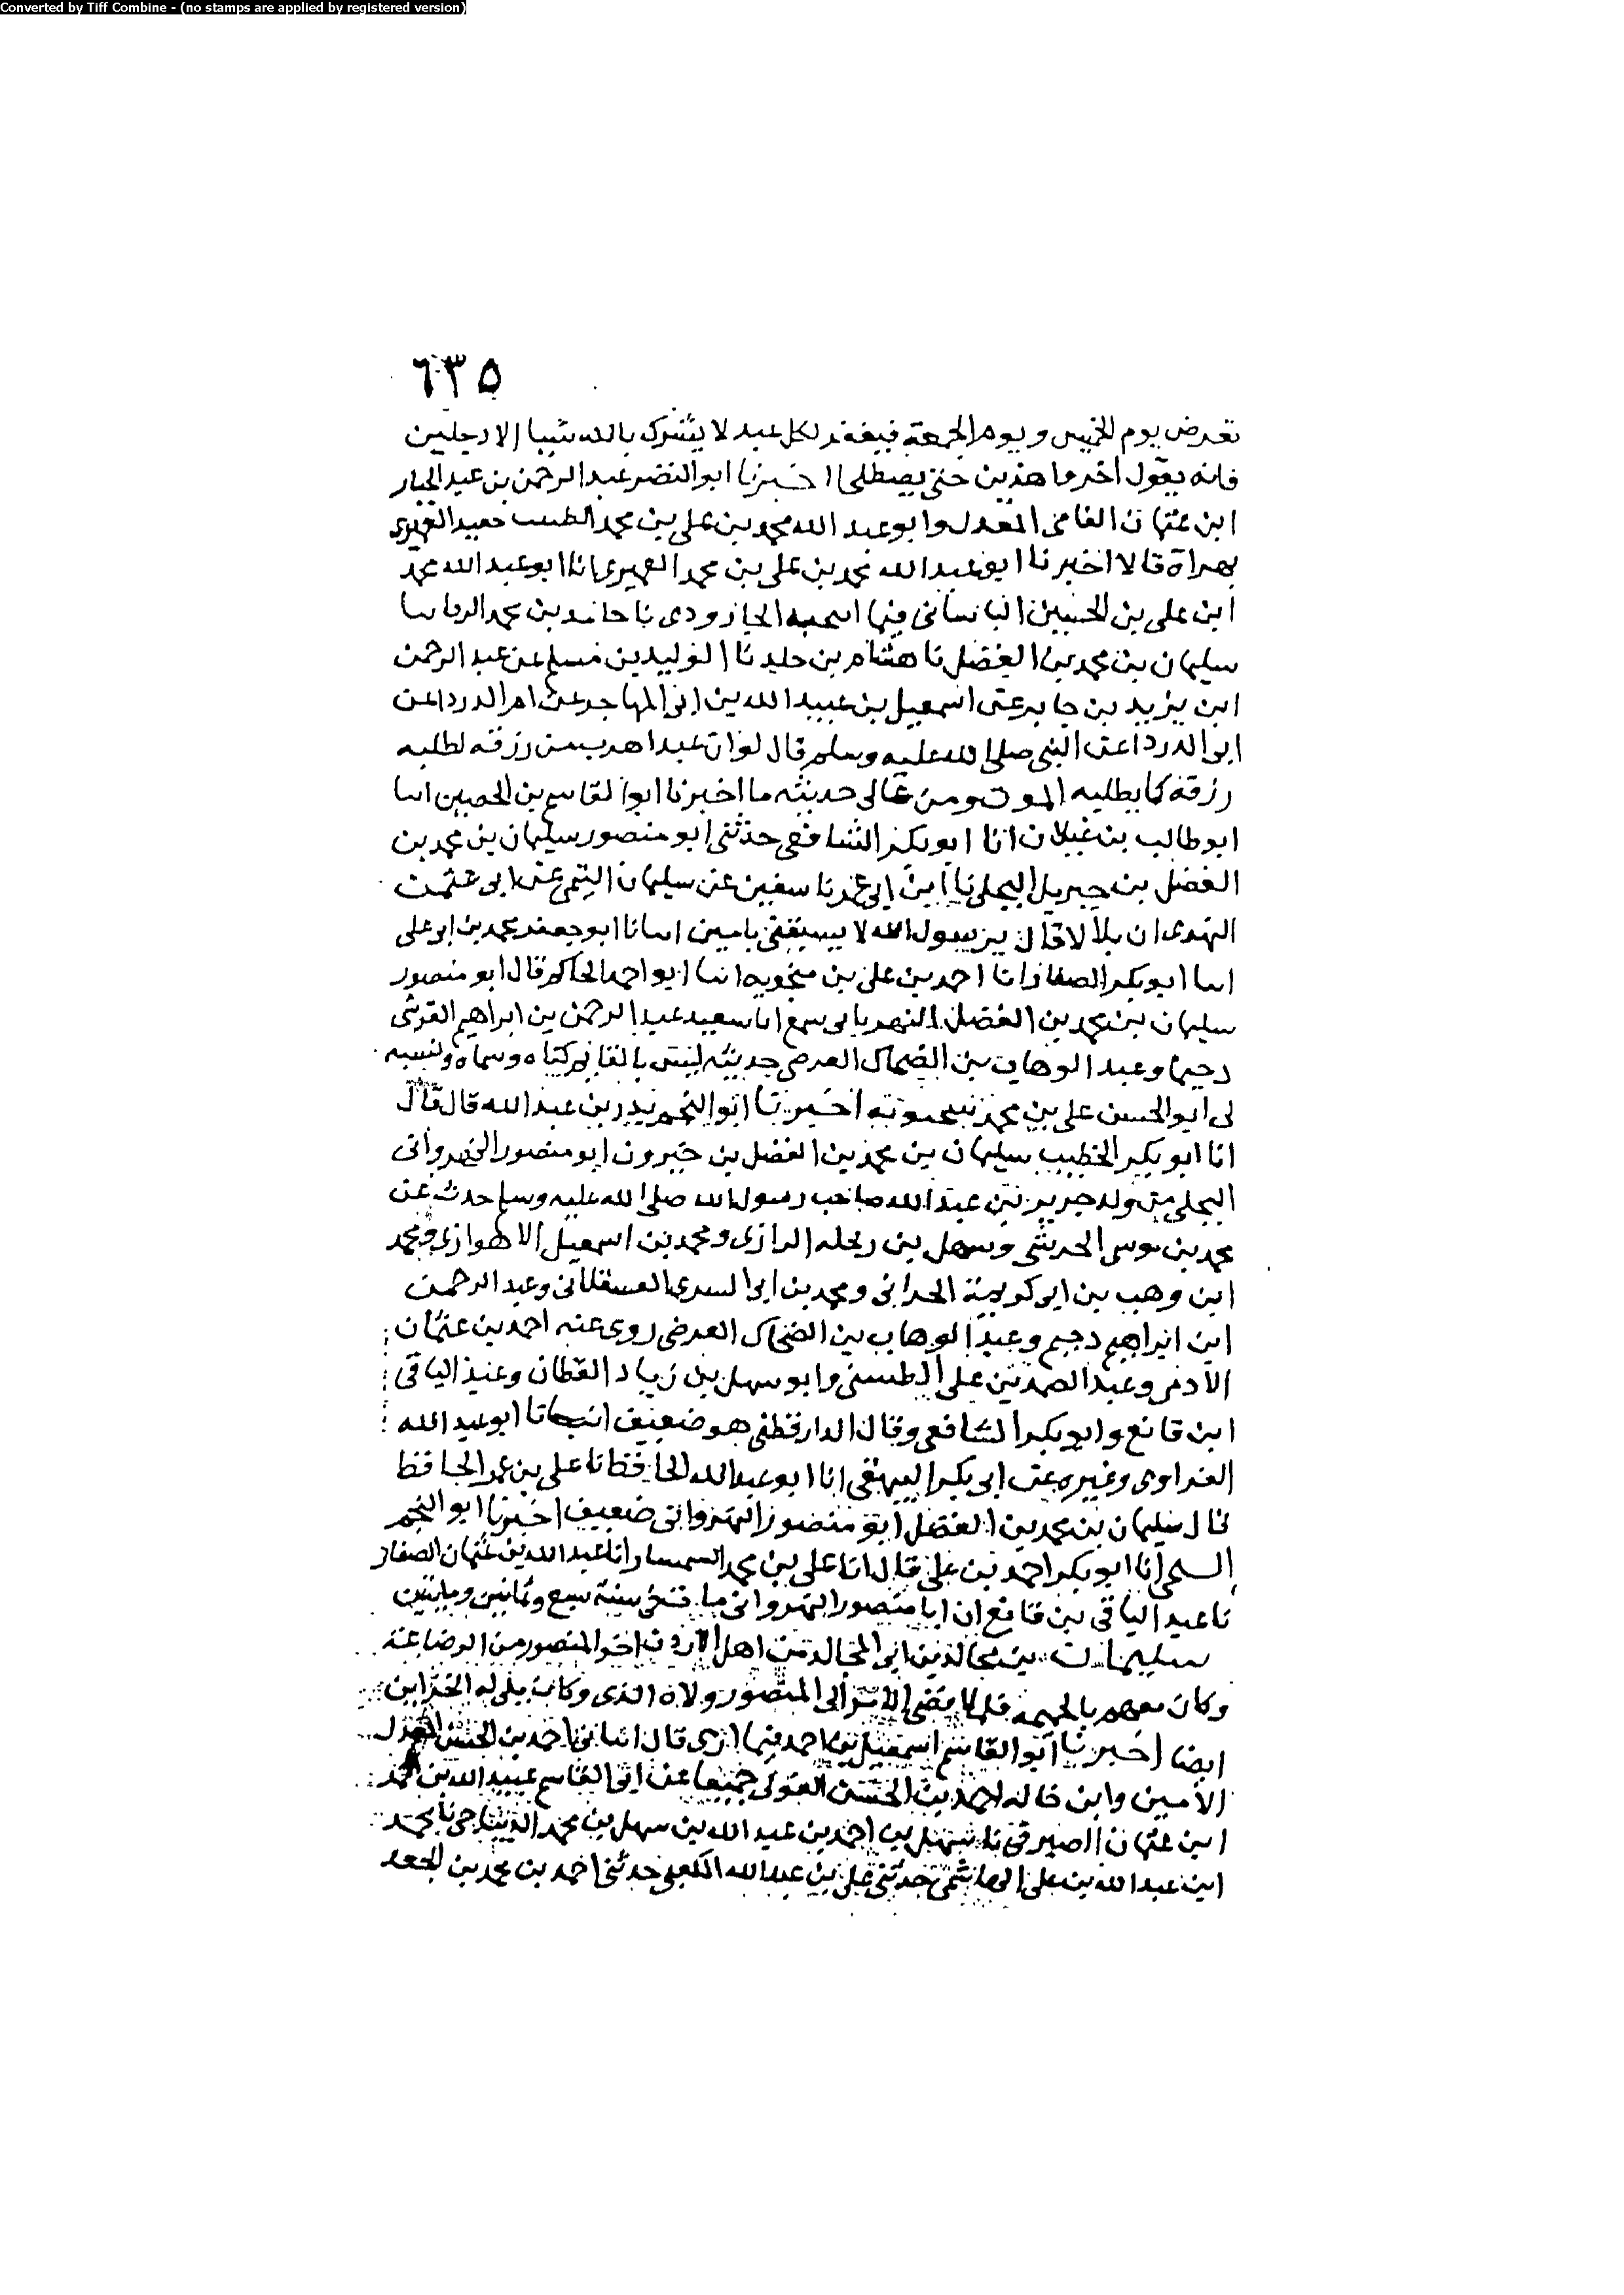 Converted by Tiff Combine - (no stamps are applied by registered version)
٦٣٥
تعرض يوم الخميس ويوم الجمعة فيغفر لكل عبد لا يشرك بالله شيا الا رجلين
فانه يقول أخروا هذين حتى يصطلحا اخبرنا ابو النضر عبد الرحمن بن عبد الجبار
ابن عثمان الفامي المعدل وابو عبد الله محمد بن علي بن محمد الطبيب
بهراة قالا اخبرنا ابو عبد الله محمد بن علي بن محمد العميري انا ابو عبد الله محمد
ابن علي بن الحسين الباساني نا حامد بن محمد الرفا نا
سليمان بن محمد بن الفضل نا هشام بن خالد نا الوليد بن مسلم عن عبد الرحمن
ابن يزيد بن جابر عن اسمعيل بن عبيد الله بن ابي المهاجر عن ام الدردا عن
ابي الدردا عن النبي صلى الله عليه وسلم قال لو ان عبدا هرب من رزقه لطلبه
رزقه كما يطلبه الموت ومن عالي حديثه ما اخبرنا ابو القاسم بن الحصين انا
ابو طالب بن غيلان انا ابو بكر الشافعي حدثني ابو منصور سليمان بن محمد بن
الفضل بن جبريل البجلي نا ابن ابي عمر نا سفين عن سليمان التيمي عن ابي عثمن
النهدي ان بلالا قال يرسول الله لا يسبقني بامين انبانا ابو جعفر محمد بن ابي علي
انا ابو بكر الصفار انا احمد بن علي بن منجويه انا ابو احمد الحاكم قال ابو منصور
سليمان بن محمد بن الفضل النهرباني سمع ابا سعيد عبد الرحمن بن ابراهيم القرشي
دحيما وعبد الوهاب بن الضحاك العرضي حديثه ليس بالقايم كناه وسماه ونسبه
لي ابو الحسن علي بن محمد اخبرنا ابو النجم بدر بن عبد الله قال قال
انا ابو بكر الخطيب سليمان بن محمد بن الفضل بن جبرون ابو منصور النهرواني
البجلي من ولد جرير بن عبد الله صاحب رسول الله صلى الله عليه وسلم حدث عن
محمد بن موسى الحرشي وسهل بن زنجله الرازي ومحمد بن اسمعيل الاهوازي ومحمد
ابن وهب بن ابي كريمة الحراني ومحمد بن ابي السري العسقلاني وعبد الرحمن
ابن ابراهيم دحيم وعبد الوهاب بن الضحاك العرضي روى عنه احمد بن عثمان
الادمي وعبد الصمد بن علي الطستي وابو سهل بن زياد القطان وعبد الباقي
ابن قانع وابو بكر الشافعي وقال الدارقطني هو ضعيف انبانا ابو عبد الله
الفراوي وغيره عن ابي بكر البيهقي انا ابو عبد الله الحافظ انا علي بن عمر الحافظ
قال سليمان بن محمد بن الفضل ابو منصور النهرواني ضعيف اخبرنا ابو النجم
انا ابو بكر احمد بن علي قال انا علي بن محمد السمسار انا عبد الله بن عثمان الصفار
نا عبد الباقي بن قانع ان ابا منصور النهرواني مات في سنة سبع وثمانين ومايتين
سليمان بن مجالد بن ابي المجالد من اهل الاردن اخو المنصور من الرضاعة
وكان معهم بالحميمة فلما افضى الامر الى المنصور ولاه الري وكان يلي له الخزاين
ايضا اخبرنا ابو القاسم اسمعيل بن احمد فيما ارى قال انباني احمد بن الحسن المعدل
الامين وابن خاله احمد بن الحسن جميعا عن ابي القاسم عبيد الله بن احمد
ابن عثمان الصيرفي نا سهل بن احمد بن عبد الله بن سهل بن محمد الديباجي نا محمد
ابن عبد الله بن علي الهاشمي حدثني علي بن عبد الله الكعبي حدثني احمد بن محمد بن الجعد